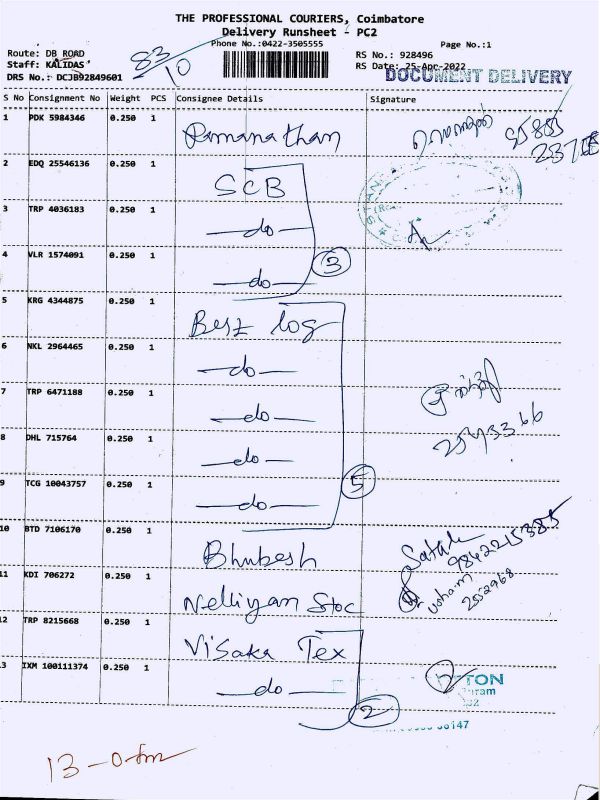 THE PROFESSIONAL COURIERS, Coimbatore
Delivery Runsheet - PC2
Phone No.:0422-3505555
Page No.:1
Route: DB ROAD
Staff: KALIDAS
DRS No.: DCJB92849601
83/10
RS No.: 928496
RS Date: 25-Apr-2022
DOCUMENT DELIVERY
S No Consignment No Weight PCS Consignee Details Signature
1 PDK 5984346 0.250 1 Ramanathan
2 EDQ 25546136 0.250 1 SCB
3 TRP 4036183 0.250 1 —do—
4 VLR 1574091 0.250 1 —do—
3
5 KRG 4344875 0.250 1 Besz log
6 NKL 2964465 0.250 1 —do—
7 TRP 6471188 0.250 1 —do—
8 DHL 715764 0.250 1 —do—
2543366
9 TCG 10043757 0.250 1 —do—
5
10 BTD 7106170 0.250 1 Bhubesh
9842215385
11 KDI 706272 0.250 1 Nelliyan Stoc
2552968
12 TRP 8215668 0.250 1 Visaka Tex
13 IXM 100111374 0.250 1 —do—
2
2
TON
13-0-